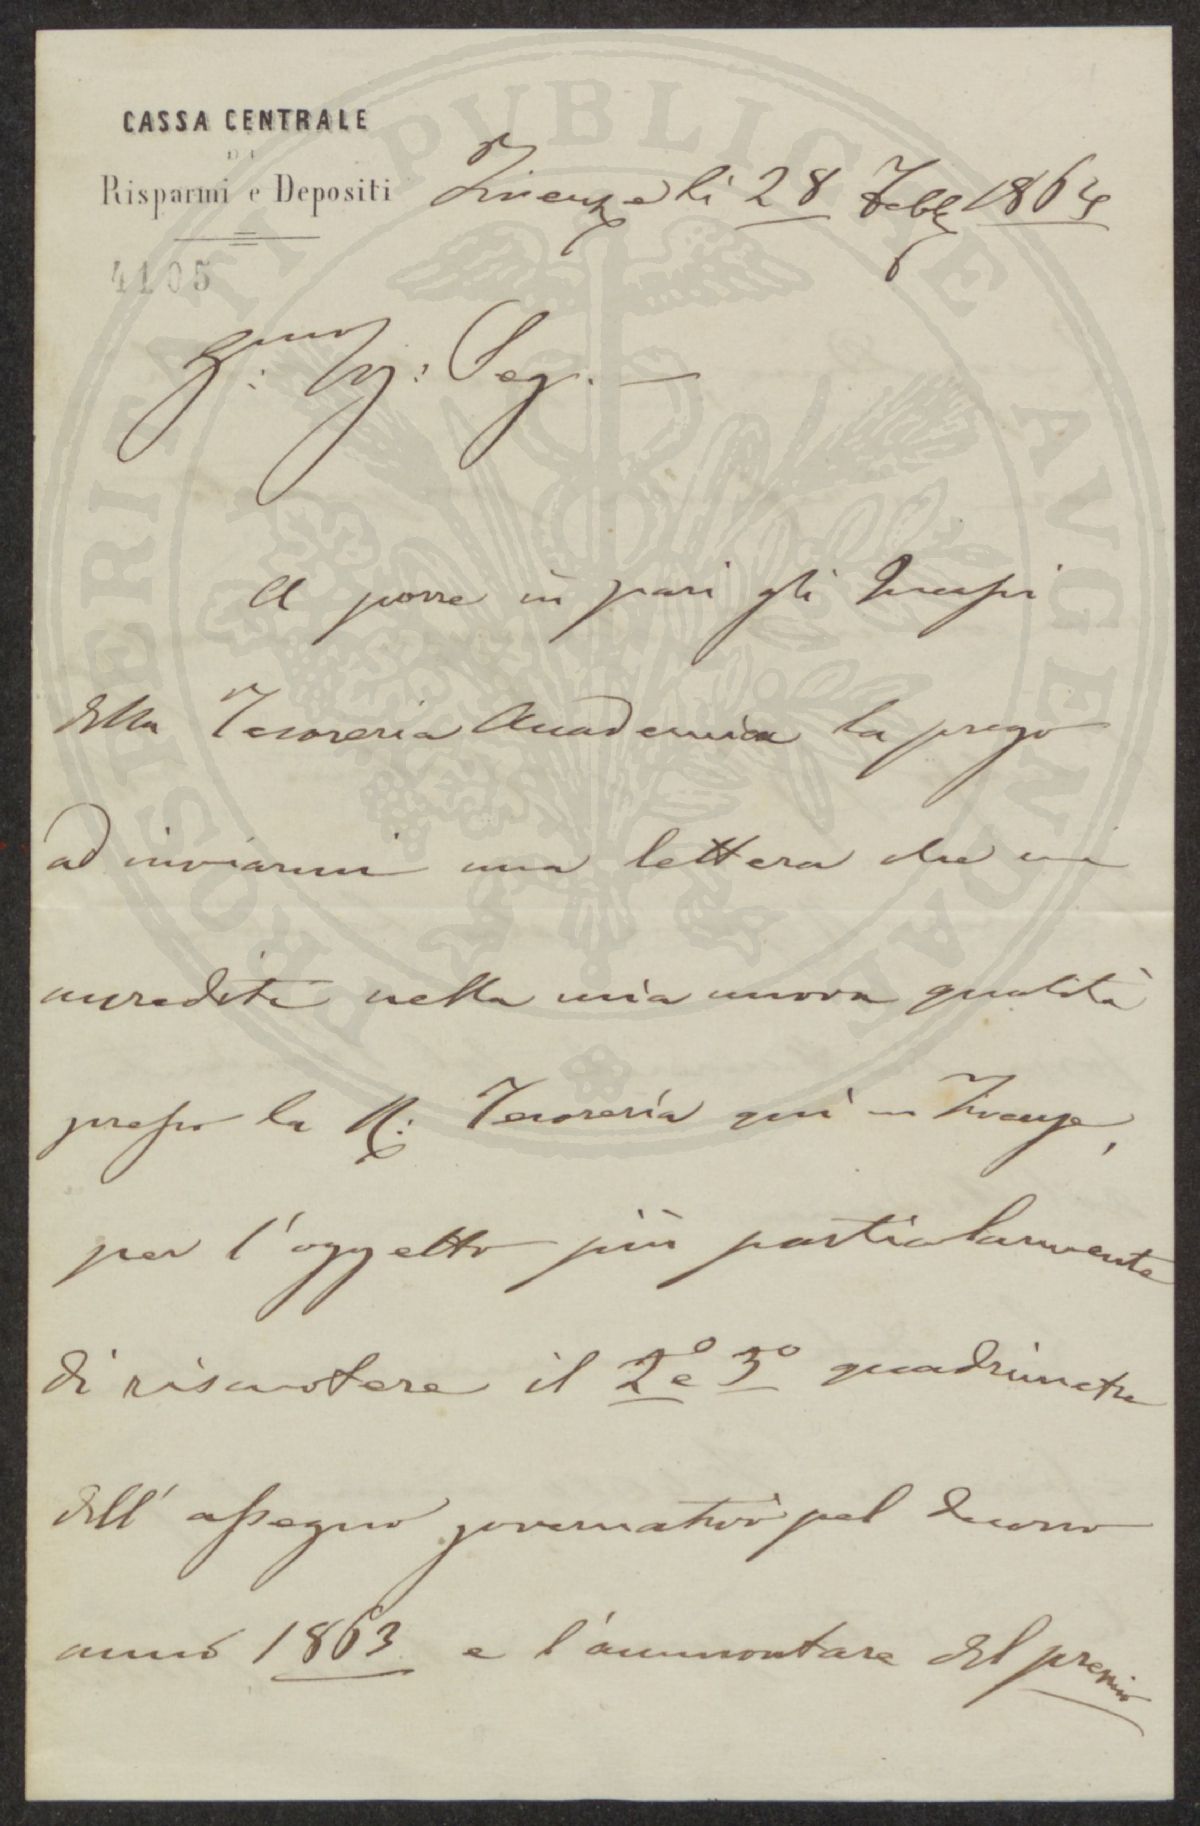 CASSA CENTRALE
DI
Risparmi e Depositi
Firenze li 28 Febb 1864
4105
Sig: Seg.
A porre in pari gli Incassi
della Tesoreria Accademica la prego
ad inviarmi una lettera che mi
accrediti nella mia nuova qualità
presso la R: Tesoreria quì in Firenze,
per l'oggetto più particolarmente
di riscuotere il 2º e 3º quadrimestre
dell'assegno governativo pel decorso
anno 1863 e l'ammontare del premio
PROSPERITATI PVBLICAE AVGENDAE